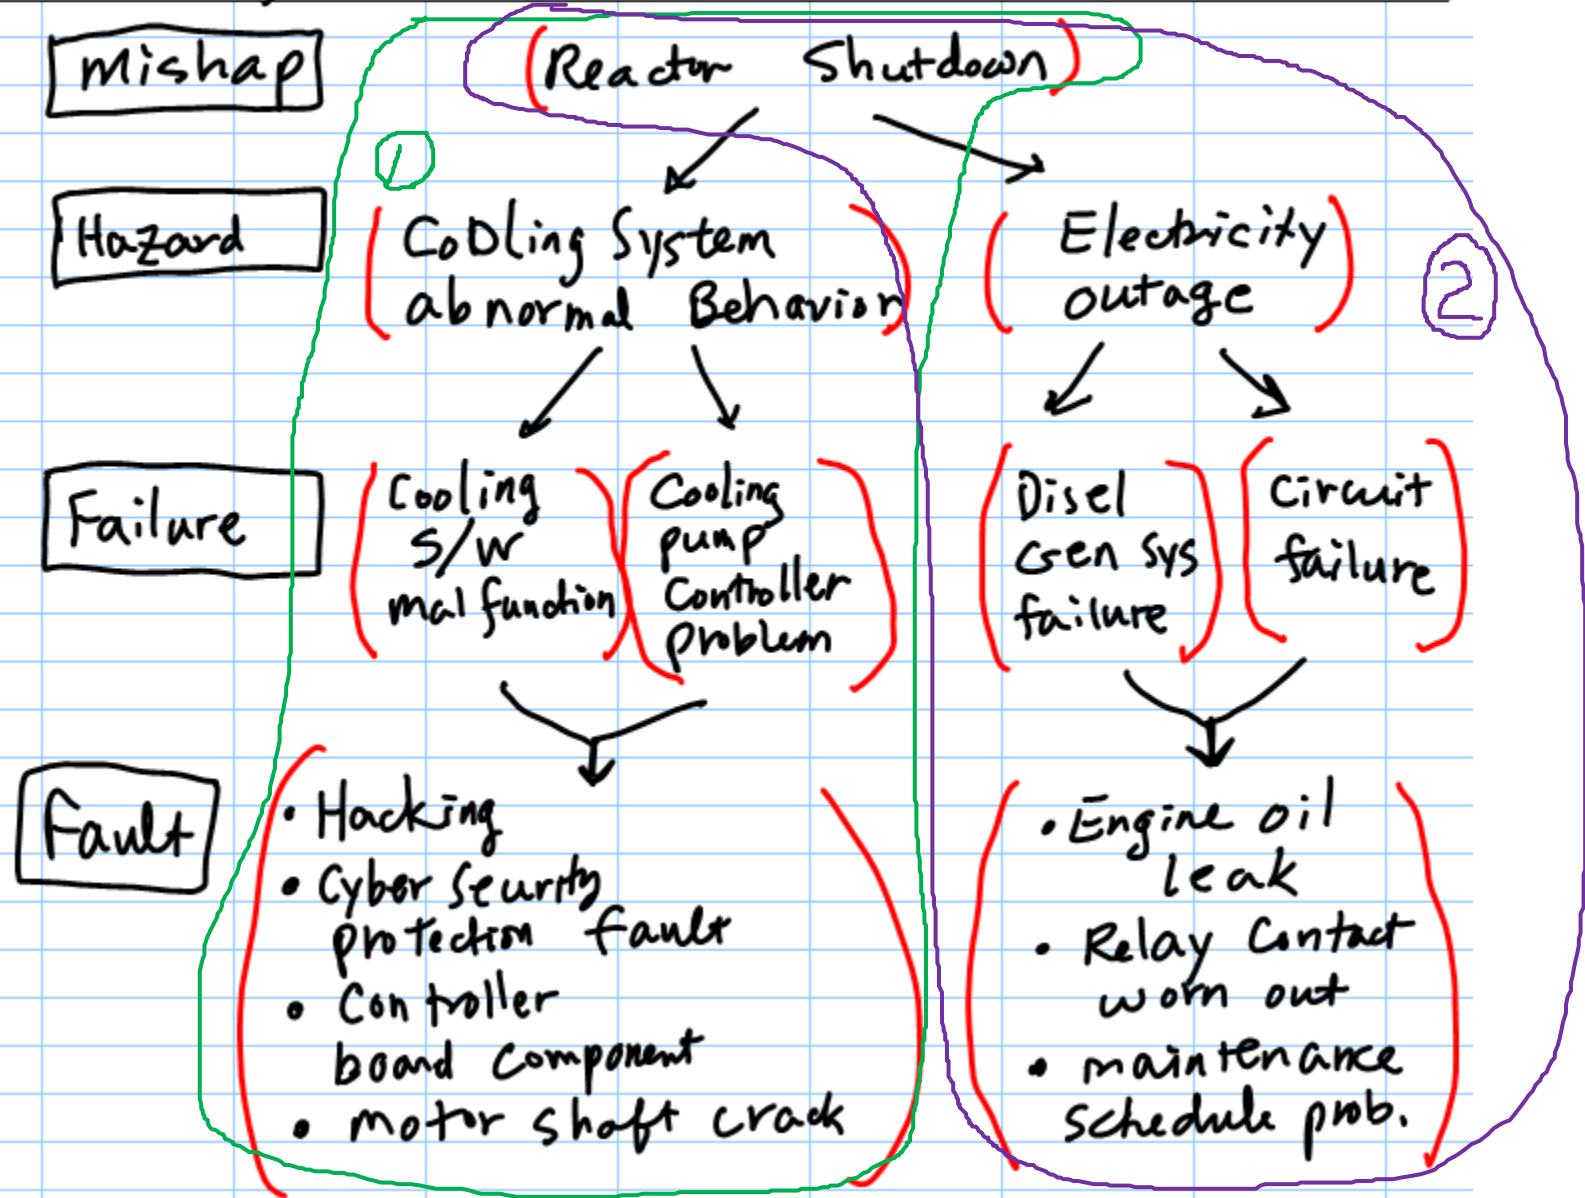 Mishap
(Reactor Shutdown)
1
Hazard
(Cooling System
abnormal Behavior)
(Electricity
outage)
2
Failure
(Cooling
S/W
malfunction)
(Cooling
pump
Controller
problem)
(Disel
Gen Sys
failure)
(Circuit
failure)
Fault
(• Hacking
• Cyber Seurity
protection fault
• Controller
board component
• motor shaft crack)
(• Engine oil
leak
• Relay Contact
worn out
• maintenance
schedule prob.)